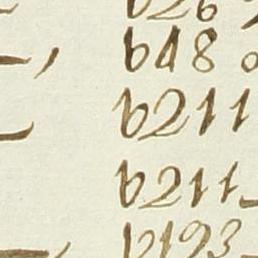 b26
b48
b211
b211
b193